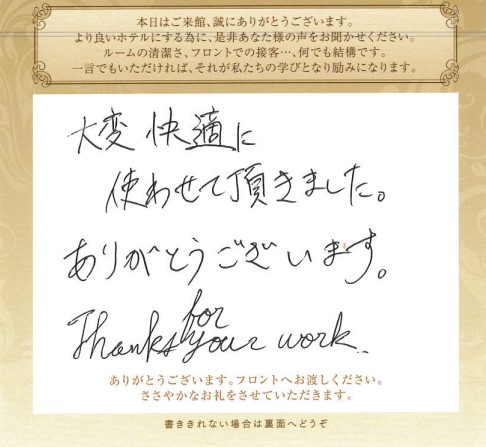 本日はご来館、誠にありがとうございます。
より良いホテルにする為に、是非あなた様の声をお聞かせください。
ルームの清潔さ、フロントでの接客…、何でも結構です。
一言でもいただければ、それが私たちの学びとなり励みになります。
大変快適に
使わせて頂きました。
ありがとうございます。
Thanks for your work.
ありがとうございます。フロントへお渡しください。
ささやかなお礼をさせていただきます。
書ききれない場合は裏面へどうぞ